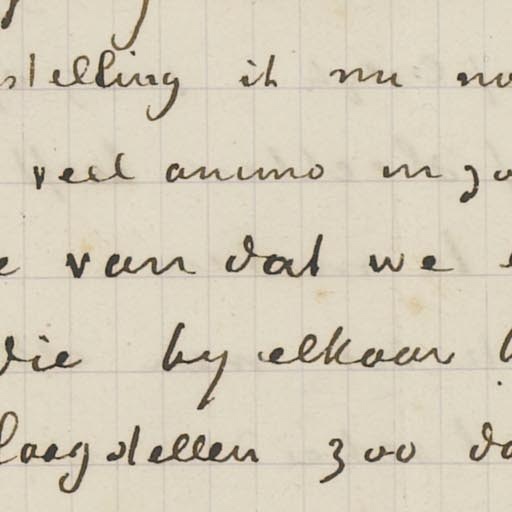 stelling it nu
veel animo in zo
van dat we
die by elkaar
laag stellen zoo da